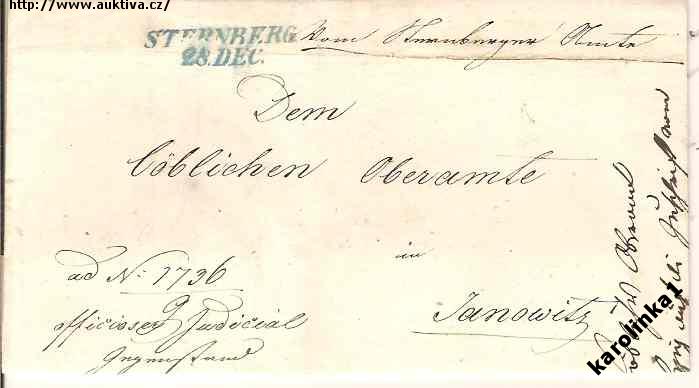 http://www.auktiva.cz/
STERNBERG
28. DEC.
Vom Sternberger Amte
Dem
löblichen Oberamte
in
Janowitz
ad No: 1736
officioser Judicial
Gegenstand
karolinka1